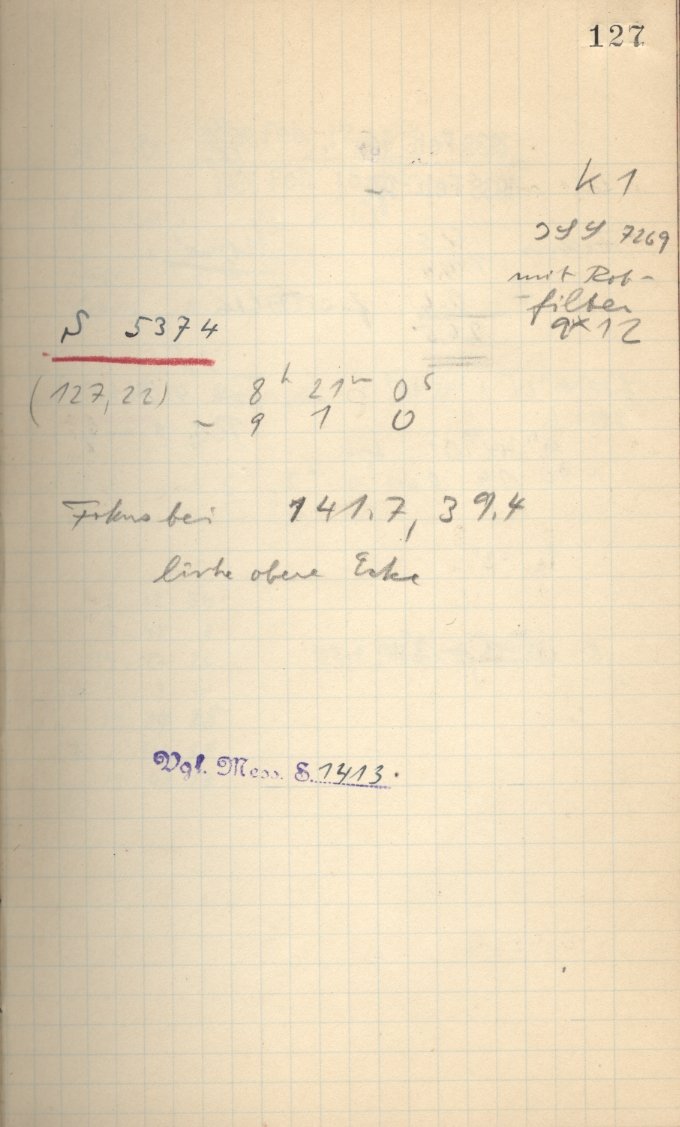 127
K 1
ISS 7269
mit Rot-
filter
9x12
S 5374
(127,22) 8h 21m 0s
- 9 1 0
Fokus bei 141.7, 39.4
linke obere Ecke
Vgl. Mess. S. 1413.